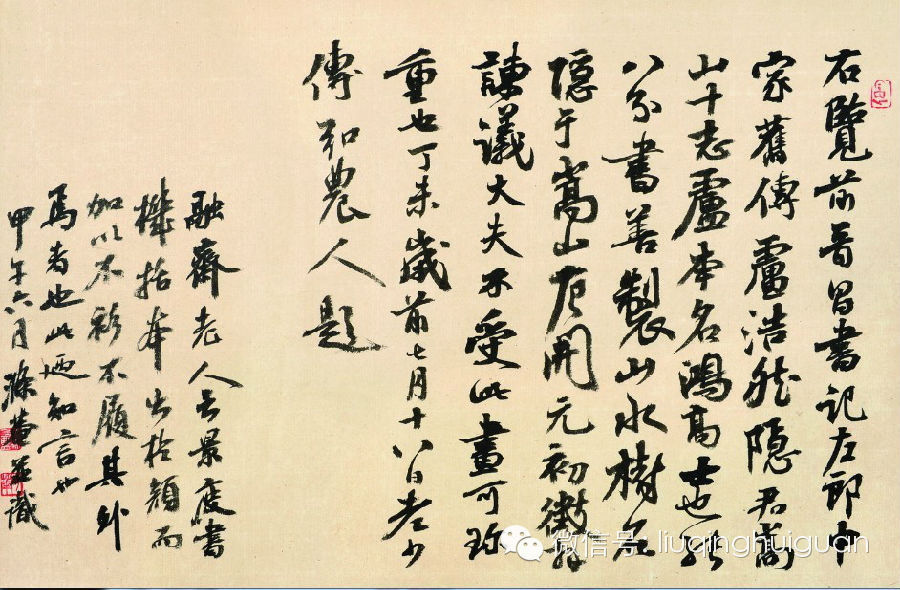 右覽前晉昌書記左郎中
家舊傳盧浩然隱居嵩
山十志盧本名鴻高士也能
八分書善製山水樹石
隱于嵩山唐開元初徵拜
諫議大夫不受此畫可珍
重也丁未歲前七月十八日老少
傅弘農人題
融齋老人云景度書
機括本出於顏而
加以不衫不履其外
焉者也此知言也
甲午六月滌菴并識
微信号: liuqinghuiguan